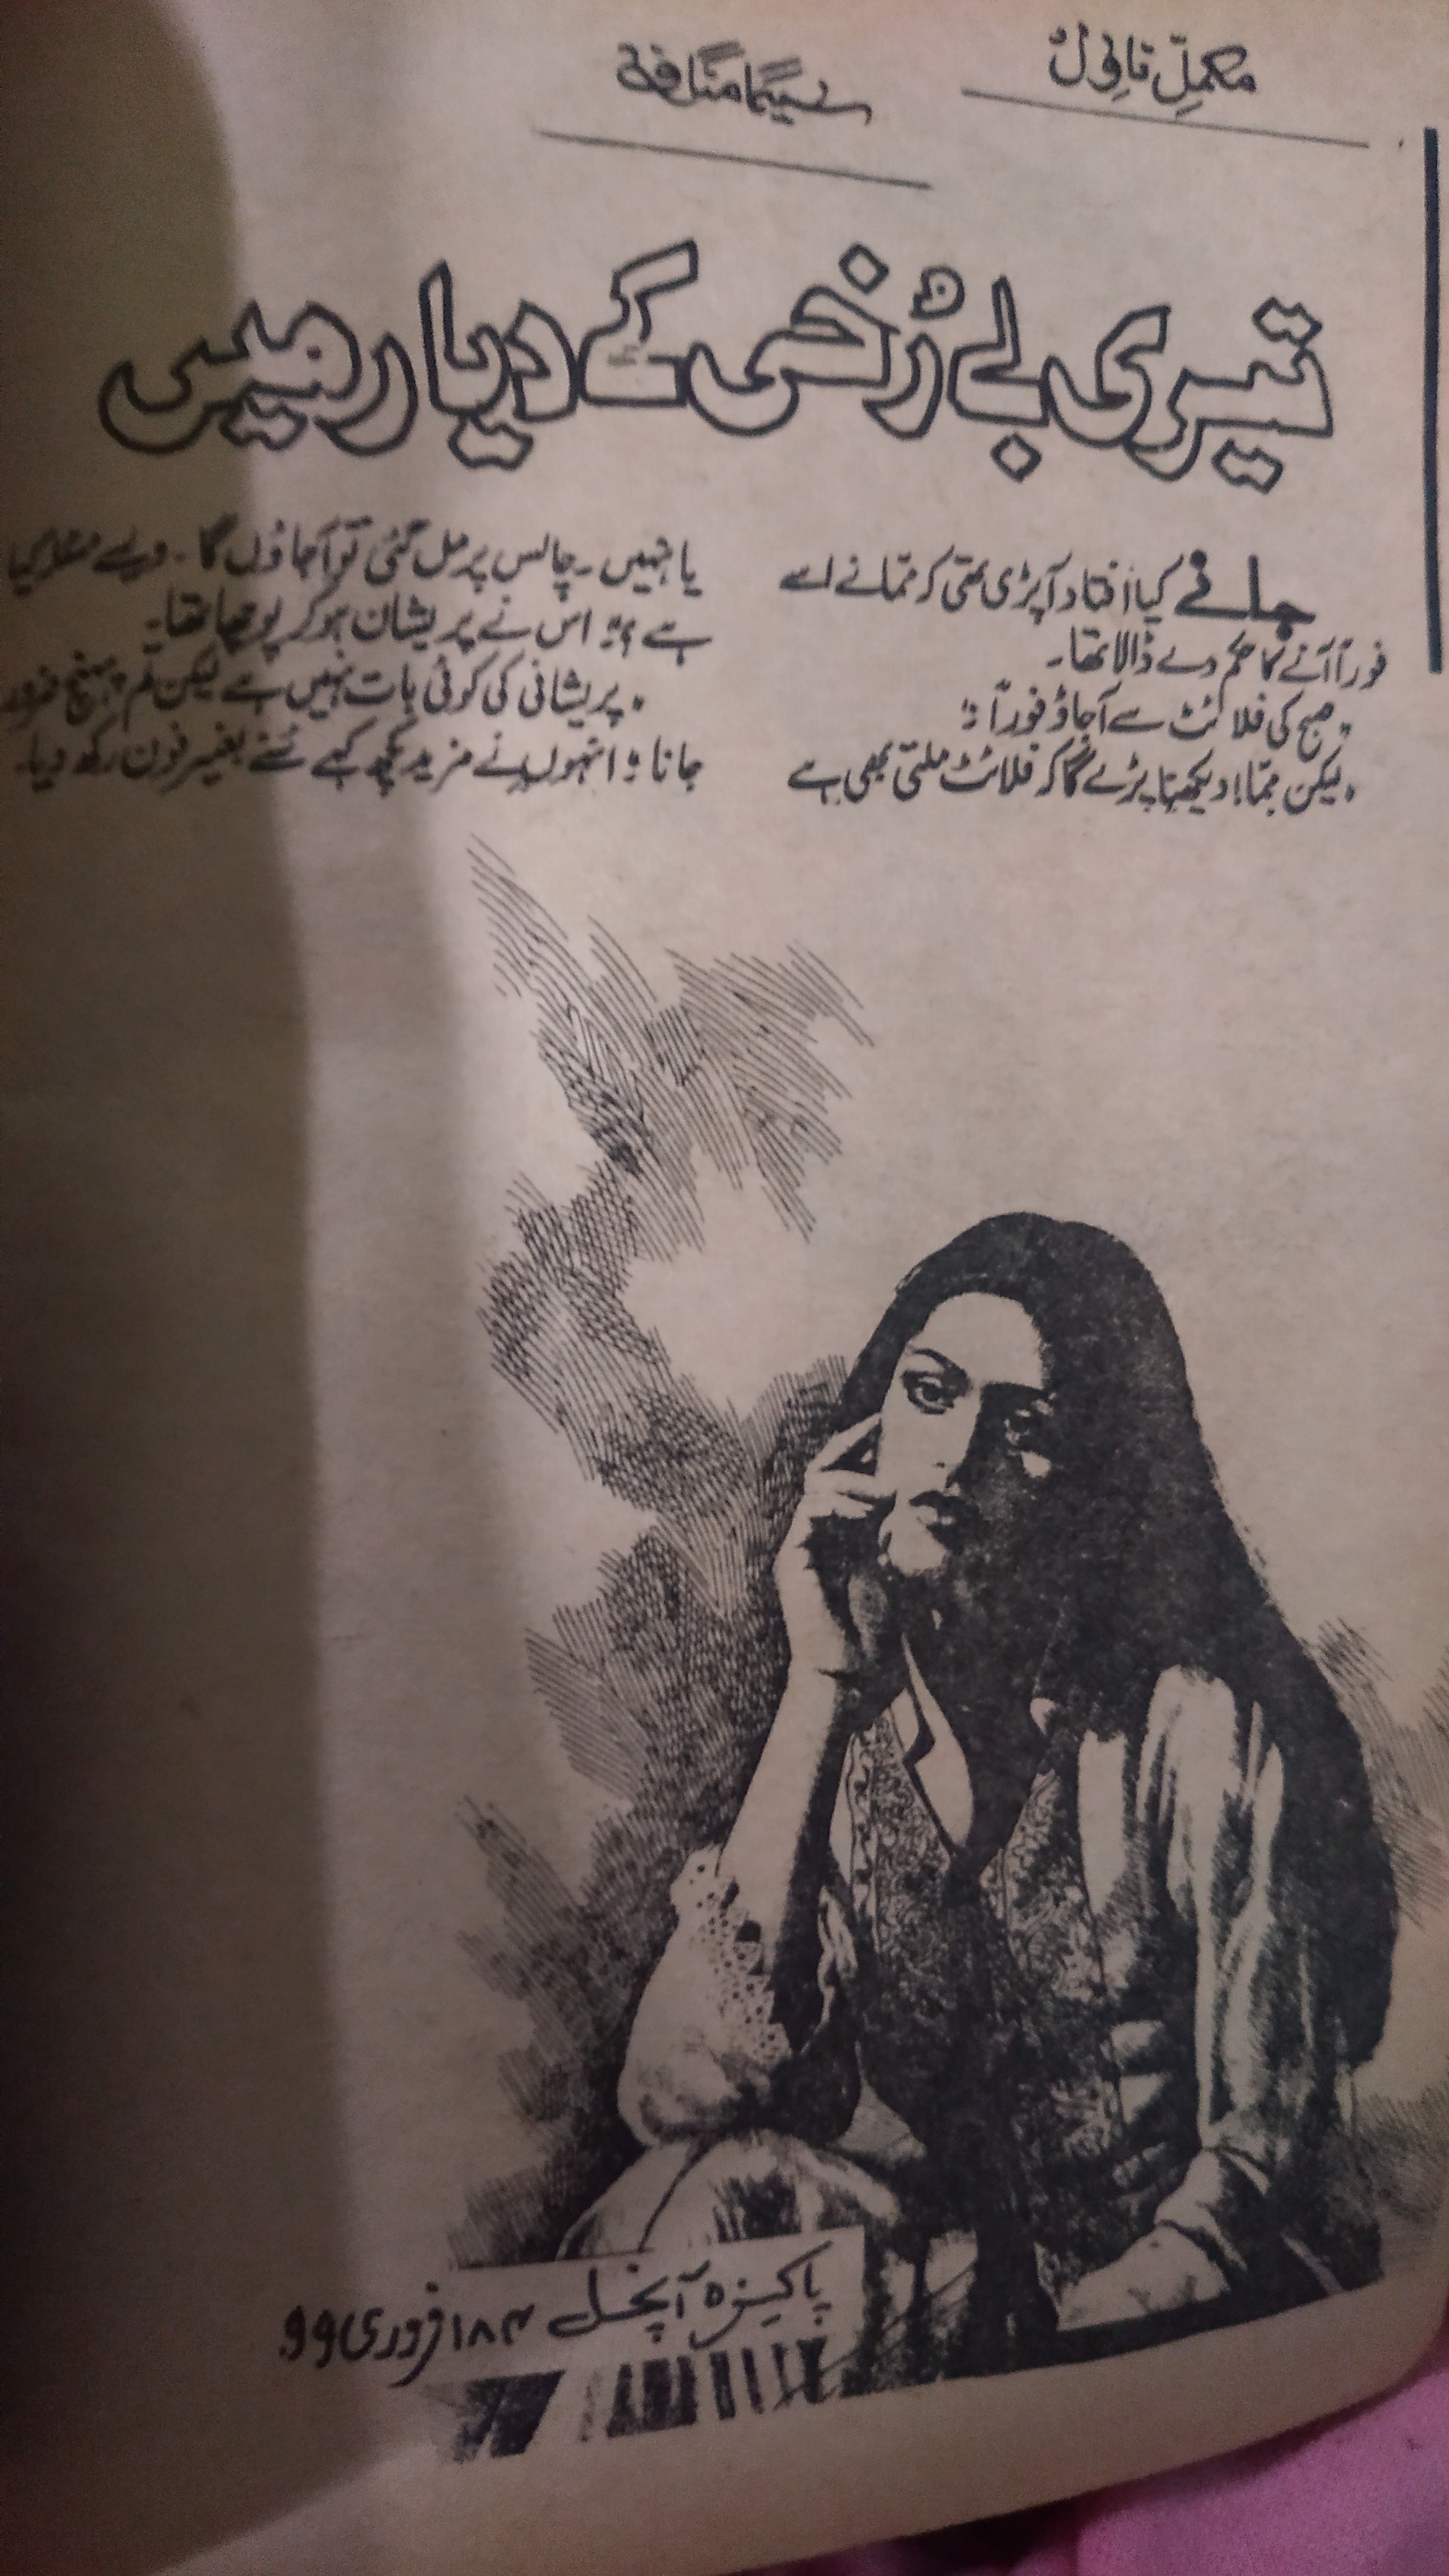 مکمل ناول
سیما مناف
تیری بے رُخی کے دیار میں
جانے کیا اُفتاد آپڑی تھی کہ ممّا نے اسے
فوراً آنے کا حکم دے ڈالا تھا۔
"صبح کی فلائٹ سے آجاؤ فوراً۔"
"لیکن ممّا! دیکھنا پڑے گا کہ فلائٹ ملتی بھی ہے
یا نہیں۔ چانس پر مل گئی تو آجاؤں گا۔ ویسے مسئلہ کیا
ہے؟" اس نے پریشان ہو کر پوچھا تھا۔
"پریشانی کی کوئی بات نہیں ہے لیکن تم پہنچ ضرور
جانا۔" انہوں نے مزید کچھ کہے سُنے بغیر فون رکھ دیا۔
پاکیزہ آنچل ۱۸۴ فروری ۹۹